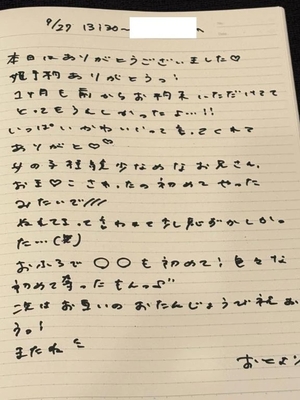 9/27 13:30〜
本日はありがとうございました♡
姫予約ありがとうっ!
1ヶ月も前からお約束いただけてて
とってもうれしかったよ…!!
いっぱいかわいいって言ってくれて
ありがと♡♡
女の子経験少なめなお兄さん、
お王♡こさわったの初めてやった
みたいで///
ぬれてるって言われてはずかしかっ
た…(笑)
おふろで〇〇も初めて!色々な
初めて奪ったもんっ♪
次はお互いのおたんじょうび祝お
うっ!
またね